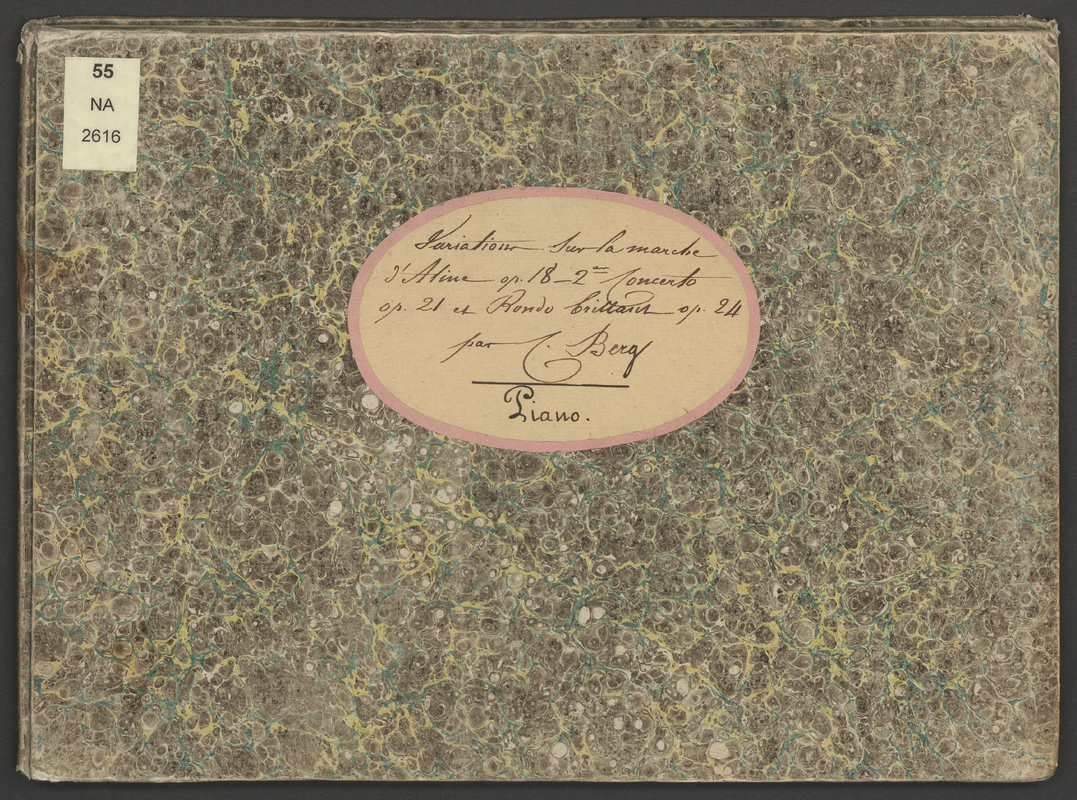 55
NA
2616
Variations sur la marche
d'Aline op. 18 – 2me Concerto
op. 21 et Rondo brillant op. 24
par C. Berg
Piano.